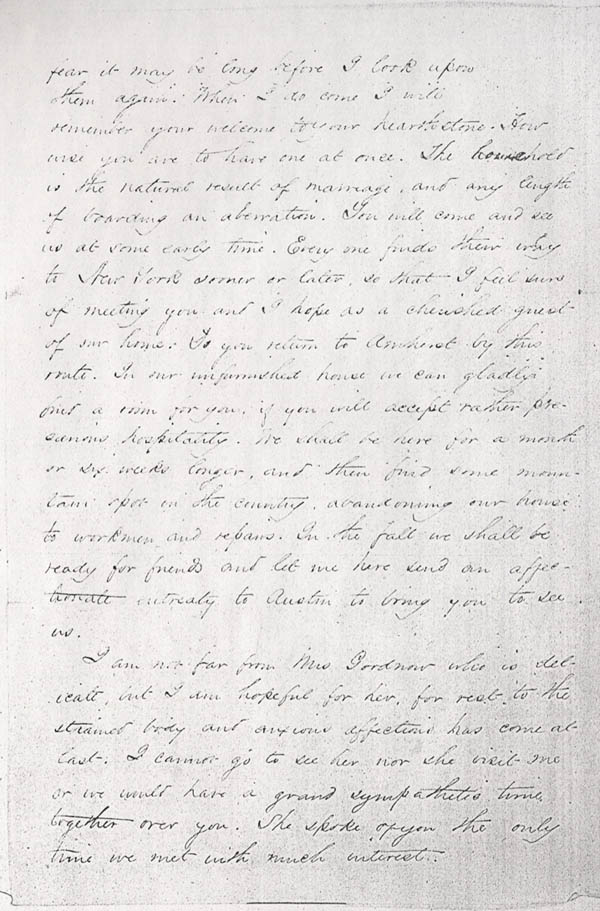 fear it may be long before I look upon
them again. When I do come I will
remember your welcome to your hearthstone. How
wise you are to have one at once. The household
is the natural result of marriage, and any length
of boarding an aberration. You will come and see
us at some early time. Every one finds their way
to New York sooner or later, so that I feel sure
of meeting you and I hope as a cherished guest
of our home. Do you return to Amherst by this
route. In our unfurnished house we can gladly
find a room for you, if you will accept rather pre-
carious hospitality. We shall be here for a month
or six weeks longer, and then find some moun-
tain spot in the country, abandoning our house
to workmen and repairs. In the fall we shall be
ready for friends and let me here send an affec-
tionate entreaty to Austin to bring you to see
us.
I am not far from Mrs Gordnow who is del-
icate, but I am hopeful for her, for rest to the
strained body and anxious affections has come at
last. I cannot go to see her nor she visit me
or we would have a grand sympathetic time
together over you. She spoke of you the only
time we met with much interest.